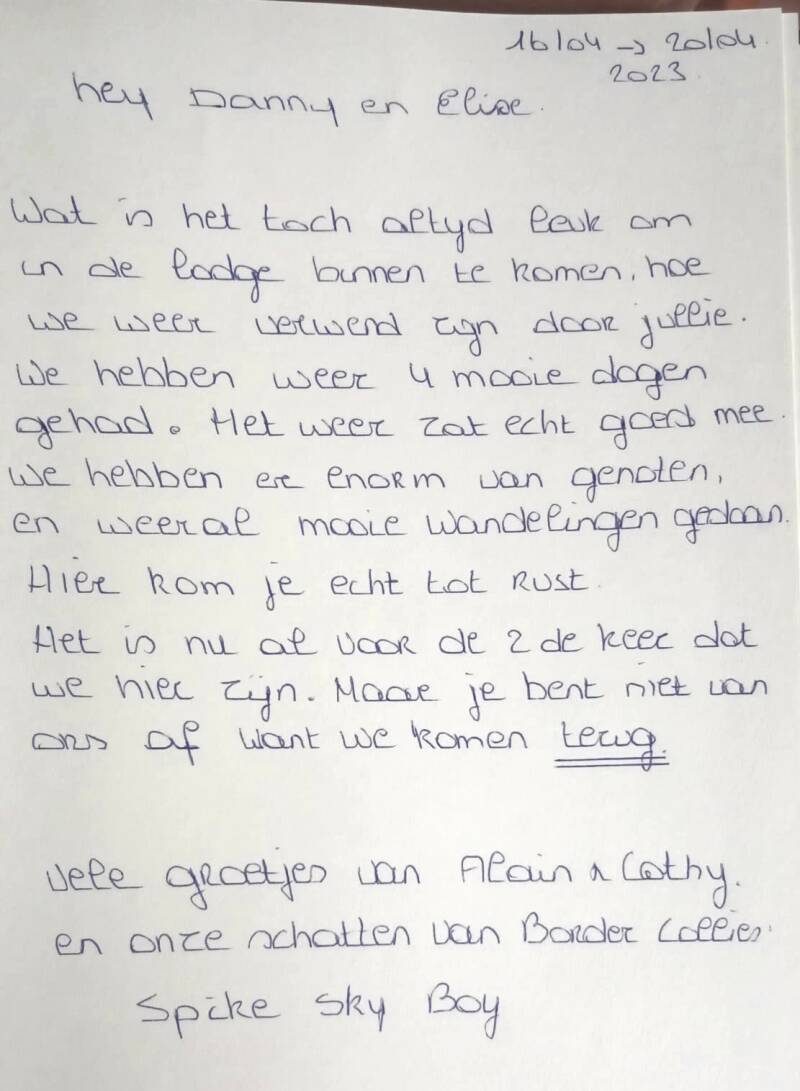 16/04 → 20/04.
2023.
hey Danny en Elise.
Wat is het toch altyd leuk om
in de lodge binnen te komen, hoe
we weer verwend zijn door jullie.
We hebben weer 4 mooie dagen
gehad. Het weer zat echt goed mee.
We hebben er enorm van genoten,
en weeral mooie wandelingen gedaan.
Hier kom je echt tot rust.
Het is nu al voor de 2 de keer dat
we hier zijn. Maar je bent niet van
ons af want we komen terug.
Vele groetjes van Alain & Cathy.
en onze schatten van Border Collies.
Spike Sky Boy